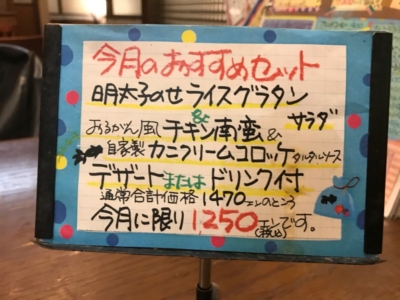 今月のおすすめセット
明太子のせライスグラタン
&
サラダ
おるがん風チキン南蛮&
自家製カニクリームコロッケタルタルソース
デザートまたはドリンク付
通常合計価格1470エンのところ
今月に限り1250エンです。
(税込)